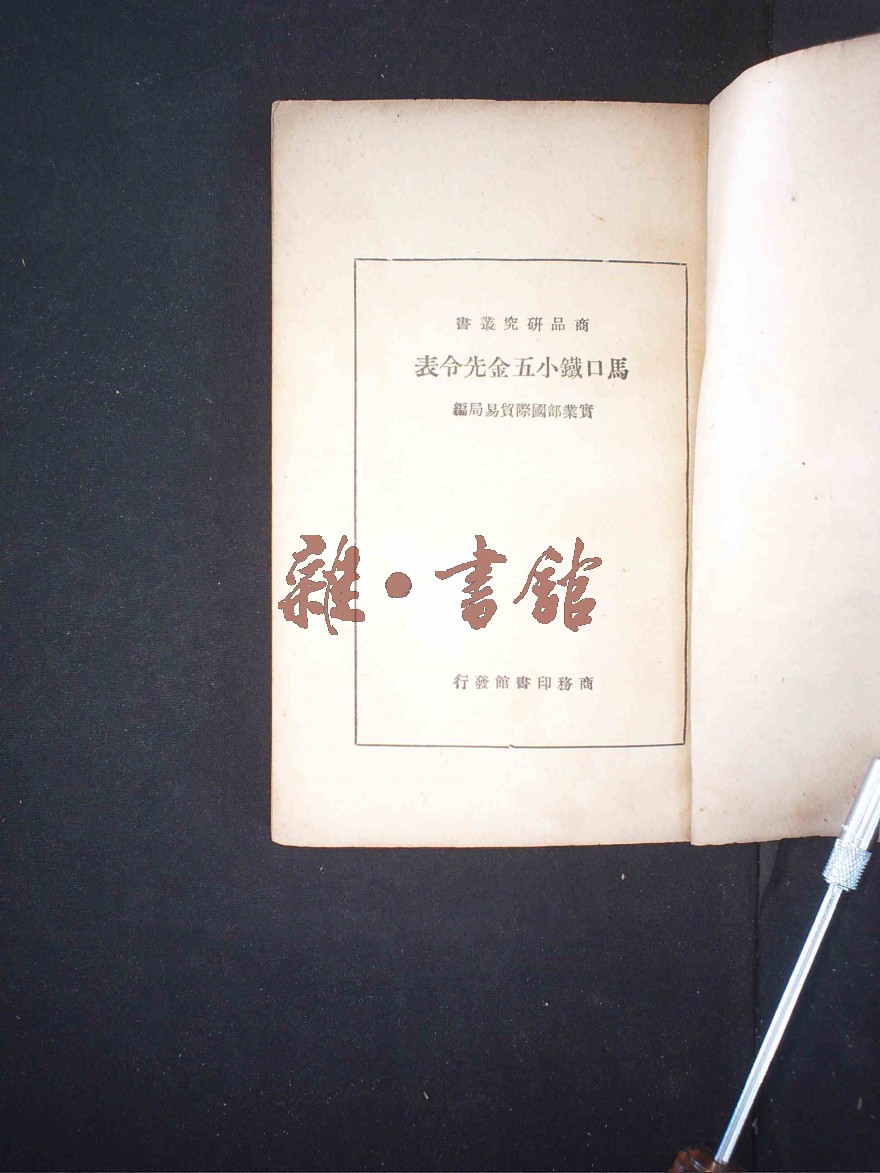 商品研究叢書
馬口鐵小五金先令表
實業部國際貿易局編
雜·書館
商務印書館發行